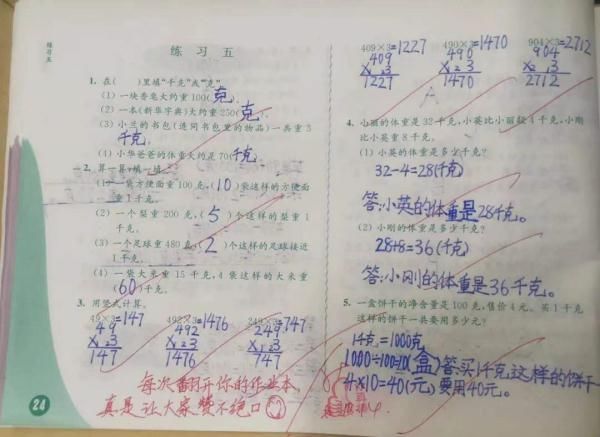 练习五
练 习 五
1. 在( )里填“千克”或“克”。
(1) 一块香皂大约重100(克)。
(2) 一本《新华字典》大约重250(克)。
(3) 小兰的书包(连同书包里的物品)一共重3
(千克)。
(4) 小华爸爸的体重大约是70(千克)。
2. 算一算，填一填。
(1) 一袋方便面重100克，(10)袋这样的方便面
重1千克。
(2) 一个梨重200克，(5)个这样的梨重1
千克。
(3) 一个足球重480克，(2)个这样的足球接近
1千克。
(4) 一袋大米重15千克，4袋这样的大米重
(60)千克。
3. 用竖式计算。
49×3=147 492×3=1476 249×3=747
49 492 249
×23 ×23 ×23
147 1476 747
每次翻开你的作业本，
真是让大家赞不绝口
24
409×3=1227 490×3=1470 904×3=2712
409 490 904
×23 ×23 ×23
1227 1470 2712
4. 小丽的体重是32千克，小英比小丽轻4千克，小刚
比小英重8千克。
(1) 小英的体重是多少千克？
32-4=28(千克)
答：小英的体重是28千克。
(2) 小刚的体重是多少千克？
28+8=36(千克)
答：小刚的体重是36千克。
5. 一盒饼干的净含量是100克，售价4元。买1千克
这样的饼干一共要用多少元？
1千克=1000克
1000÷100=10(盒) 答：买1千克这样的饼干一共
4×10=40(元) 要用40元。